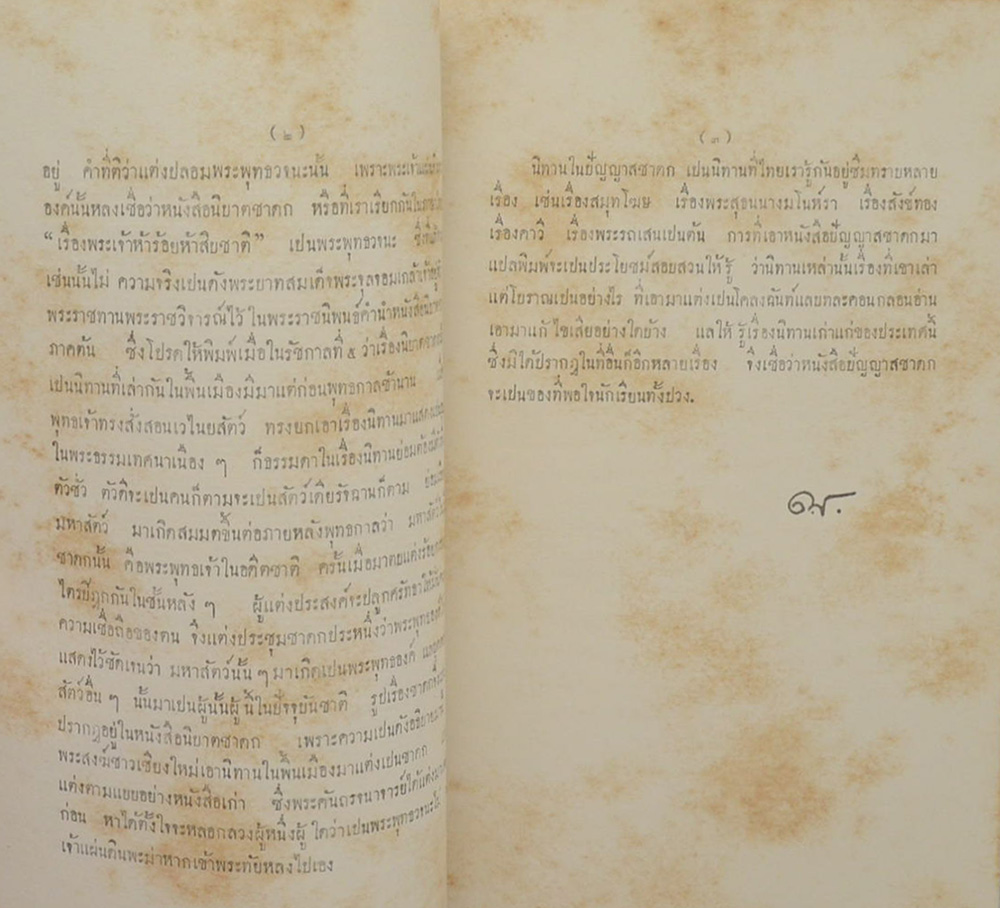 ( ๒ )
อยู่ คำที่ติว่าแต่งปลอมพระพุทธวจนะนั้น เพราะพระเจ้าแผ่นดิน
องค์นั้นหลงเชื่อว่าหนังสือนิบาตชาดก หรือที่เราเรียกกันใน
“เรื่องพระเจ้าห้าร้อยห้าสิบชาติ” เป็นพระพุทธวจนะ ซึ่งที่แท้
เช่นนั้นไม่ ความจริงเป็นดังพระบาทสมเด็จพระจุลจอมเกล้าเจ้าอยู่หัว
พระราชทานพระราชวิจารณ์ไว้ ในพระราชนิพนธ์คำนำหนังสือนิบาต
ภาคต้น ซึ่งโปรดให้พิมพ์เมื่อในรัชกาลที่ ๕ ว่าเรื่องนิบาตชาดก
เป็นนิทานที่เล่ากันในพื้นเมืองมีมาแต่ก่อนพุทธกาลช้านาน เมื่อ
พุทธเจ้าทรงสั่งสอนเวไนยสัตว์ ทรงยกเอาเรื่องนิทานมาแสดง
ในพระธรรมเทศนาเนือง ๆ ก็ธรรมดาในเรื่องนิทานย่อมต้องมีตัวดี
ตัวชั่ว ตัวดีจะเปนคนก็ตามจะเปนสัตว์เดียรัจฉานก็ตาม
มหาสัตว์ มาเกิดสมมตขึ้นต่อภายหลังพุทธกาลว่า มหาสัตว์ใน
ชาดกนั้น คือพระพุทธเจ้าในอดีตชาติ ครั้นเมื่อมาตบแต่งร้อยกรอง
ไตรปิฎกกันในชั้นหลัง ๆ ผู้แต่งประสงค์จะปลูกศรัทธาให้
ความเชื่อถือของตน จึงแต่งประชุมชาดกประหนึ่งว่าพระพุทธองค์
แสดงไว้ชัดเจนว่า มหาสัตว์นั้น ๆ มาเกิดเป็นพระพุทธองค์
สัตว์อื่น ๆ นั้นมาเปนผู้นั้นผู้นี้ในปัจจุบันชาติ รูปเรื่องชาดก
ปรากฎอยู่ในหนังสือนิบาตชาดก เพราะความเปนดังอธิบายมา
พระสงฆ์ชาวเชียงใหม่เอานิทานในพื้นเมืองมาแต่งเป็นชาดก
แต่งตามแบบอย่างหนังสือเก่า ซึ่งพระคันถรจนาจารย์ได้แต่งมา
ก่อน หาได้ตั้งใจจะหลอกลวงผู้หนึ่งผู้ใดว่าเปนพระพุทธวจนะไม่
เจ้าแผ่นดินพะม่าหากเข้าพระทัยหลงไปเอง
( ๓ )
นิทานในปัญญาสชาดก เปนนิทานที่ไทยเรารู้กันอยู่ซึมทราบหลาย
เรื่อง เช่นเรื่องสมุทโฆษ เรื่องพระสุธนนางมโนห์รา เรื่องสังข์ทอง
เรื่องคาวี เรื่องพระรถเสนเปนต้น การที่เอาหนังสือปัญญาสชาดกมา
แปลพิมพ์จะเปนประโยชน์สอบสวนให้รู้ ว่านิทานเหล่านั้นเรื่องที่เขาเล่า
แต่โบราณเปนอย่างไร ที่เอามาแต่งเปนโคลงฉันท์แลบทละคอนกลอนอ่าน
เอามาแก้ไขเสียอย่างใดบ้าง แลให้รู้เรื่องนิทานเก่าแก่ของประเทศนี้
ซึ่งมิได้ปรากฎในที่อื่นก็อีกหลายเรื่อง จึงเชื่อว่าหนังสือปัญญาสชาดก
จะเปนของที่พอใจนักเรียนทั้งปวง.